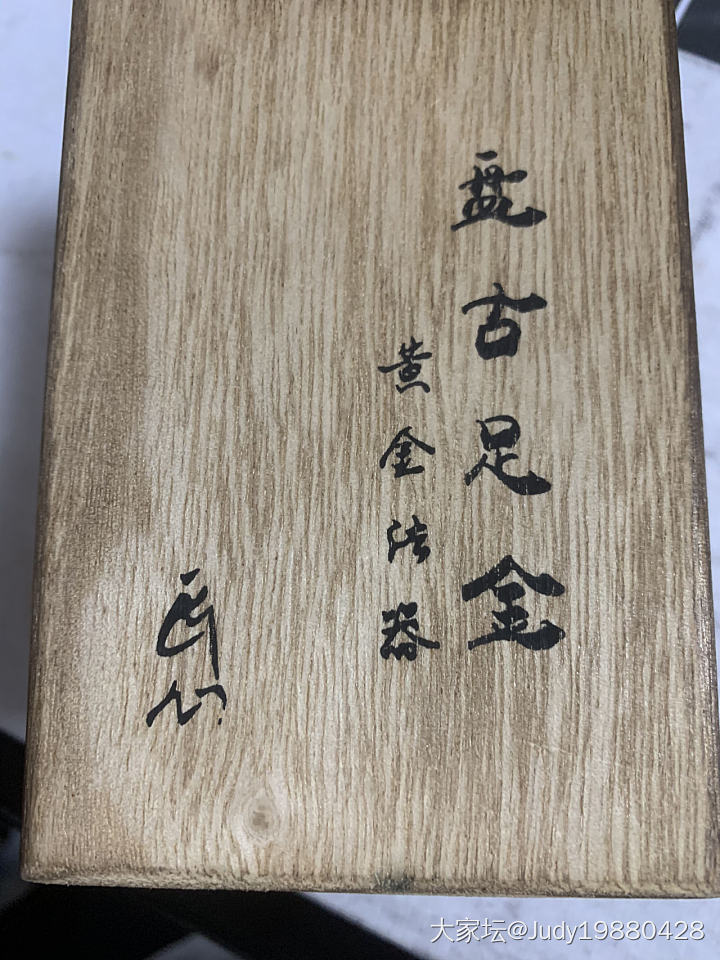 盘古足金
黄金法器
匠心
大家坛@Judy19880428